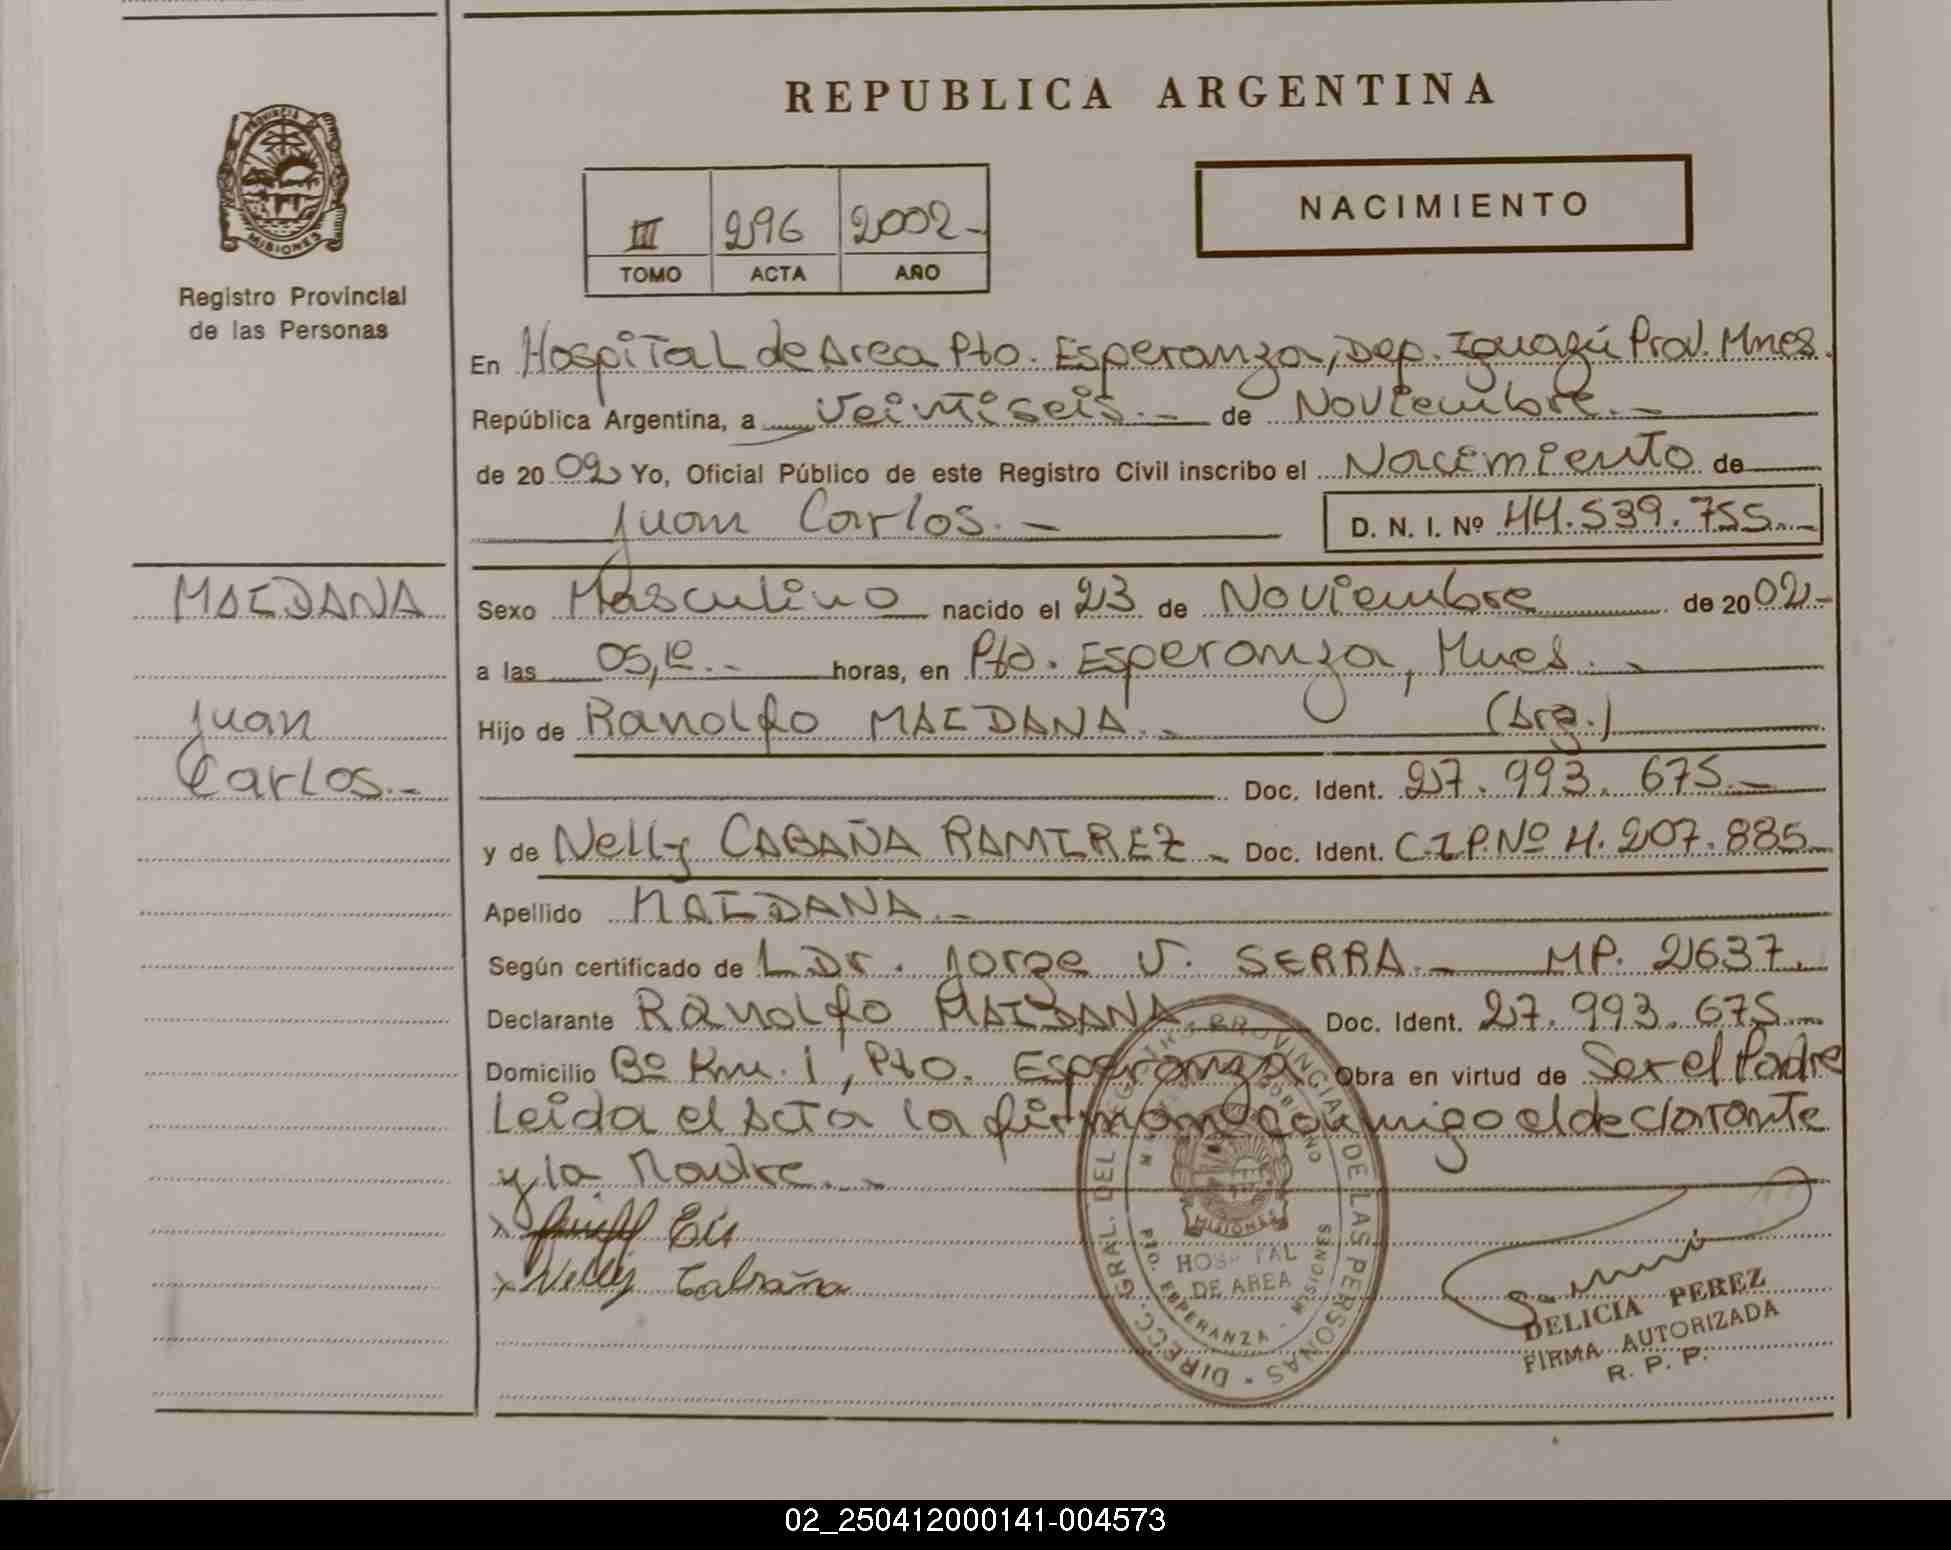 REPUBLICA ARGENTINA
PROVINCIA DE
MISIONES
Registro Provincial
de las Personas
III 296 2002-
TOMO ACTA AÑO
NACIMIENTO
En Hospital de Area Pto. Esperanza, Dep. Iguazú Prov. Mnes.
República Argentina, a Veintiseis.- de Noviembre.-
de 2002 Yo, Oficial Público de este Registro Civil inscribo el Nacimiento de
Juan Carlos.- D. N. I. Nº 44.539.755.-
MAIDANA
Juan
Carlos.-
Sexo Masculino nacido el 23 de Noviembre de 2002-
a las 05,10.- horas, en Pto. Esperanza, Mnes.-
Hijo de Ranolfo MAIDANA.- (Arg.)
Doc. Ident. 27.993.675.-
y de Nelly CABAÑA RAMIREZ- Doc. Ident. C.I.P.Nº 4.207.885-
Apellido MAIDANA.-
Según certificado de L.Dr. Jorge V. SERRA.- MP. 2637.
Declarante Ranolfo MAIDANA Doc. Ident. 27.993.675.-
Domicilio Bº Km. 1, Pto. Esperanza Obra en virtud de Ser el Padre
Leida el Acta la firman conmigo el declarante
y la Madre.-
Nelly Cabaña
DIRECC. GRAL. DEL REGISTRO PROVINCIAL DE LAS PERSONAS
MISIONES
HOSPITAL
DE AREA
PTO. ESPERANZA - MISIONES
DELICIA PEREZ
FIRMA AUTORIZADA
R. P. P.
02_250412000141-004573